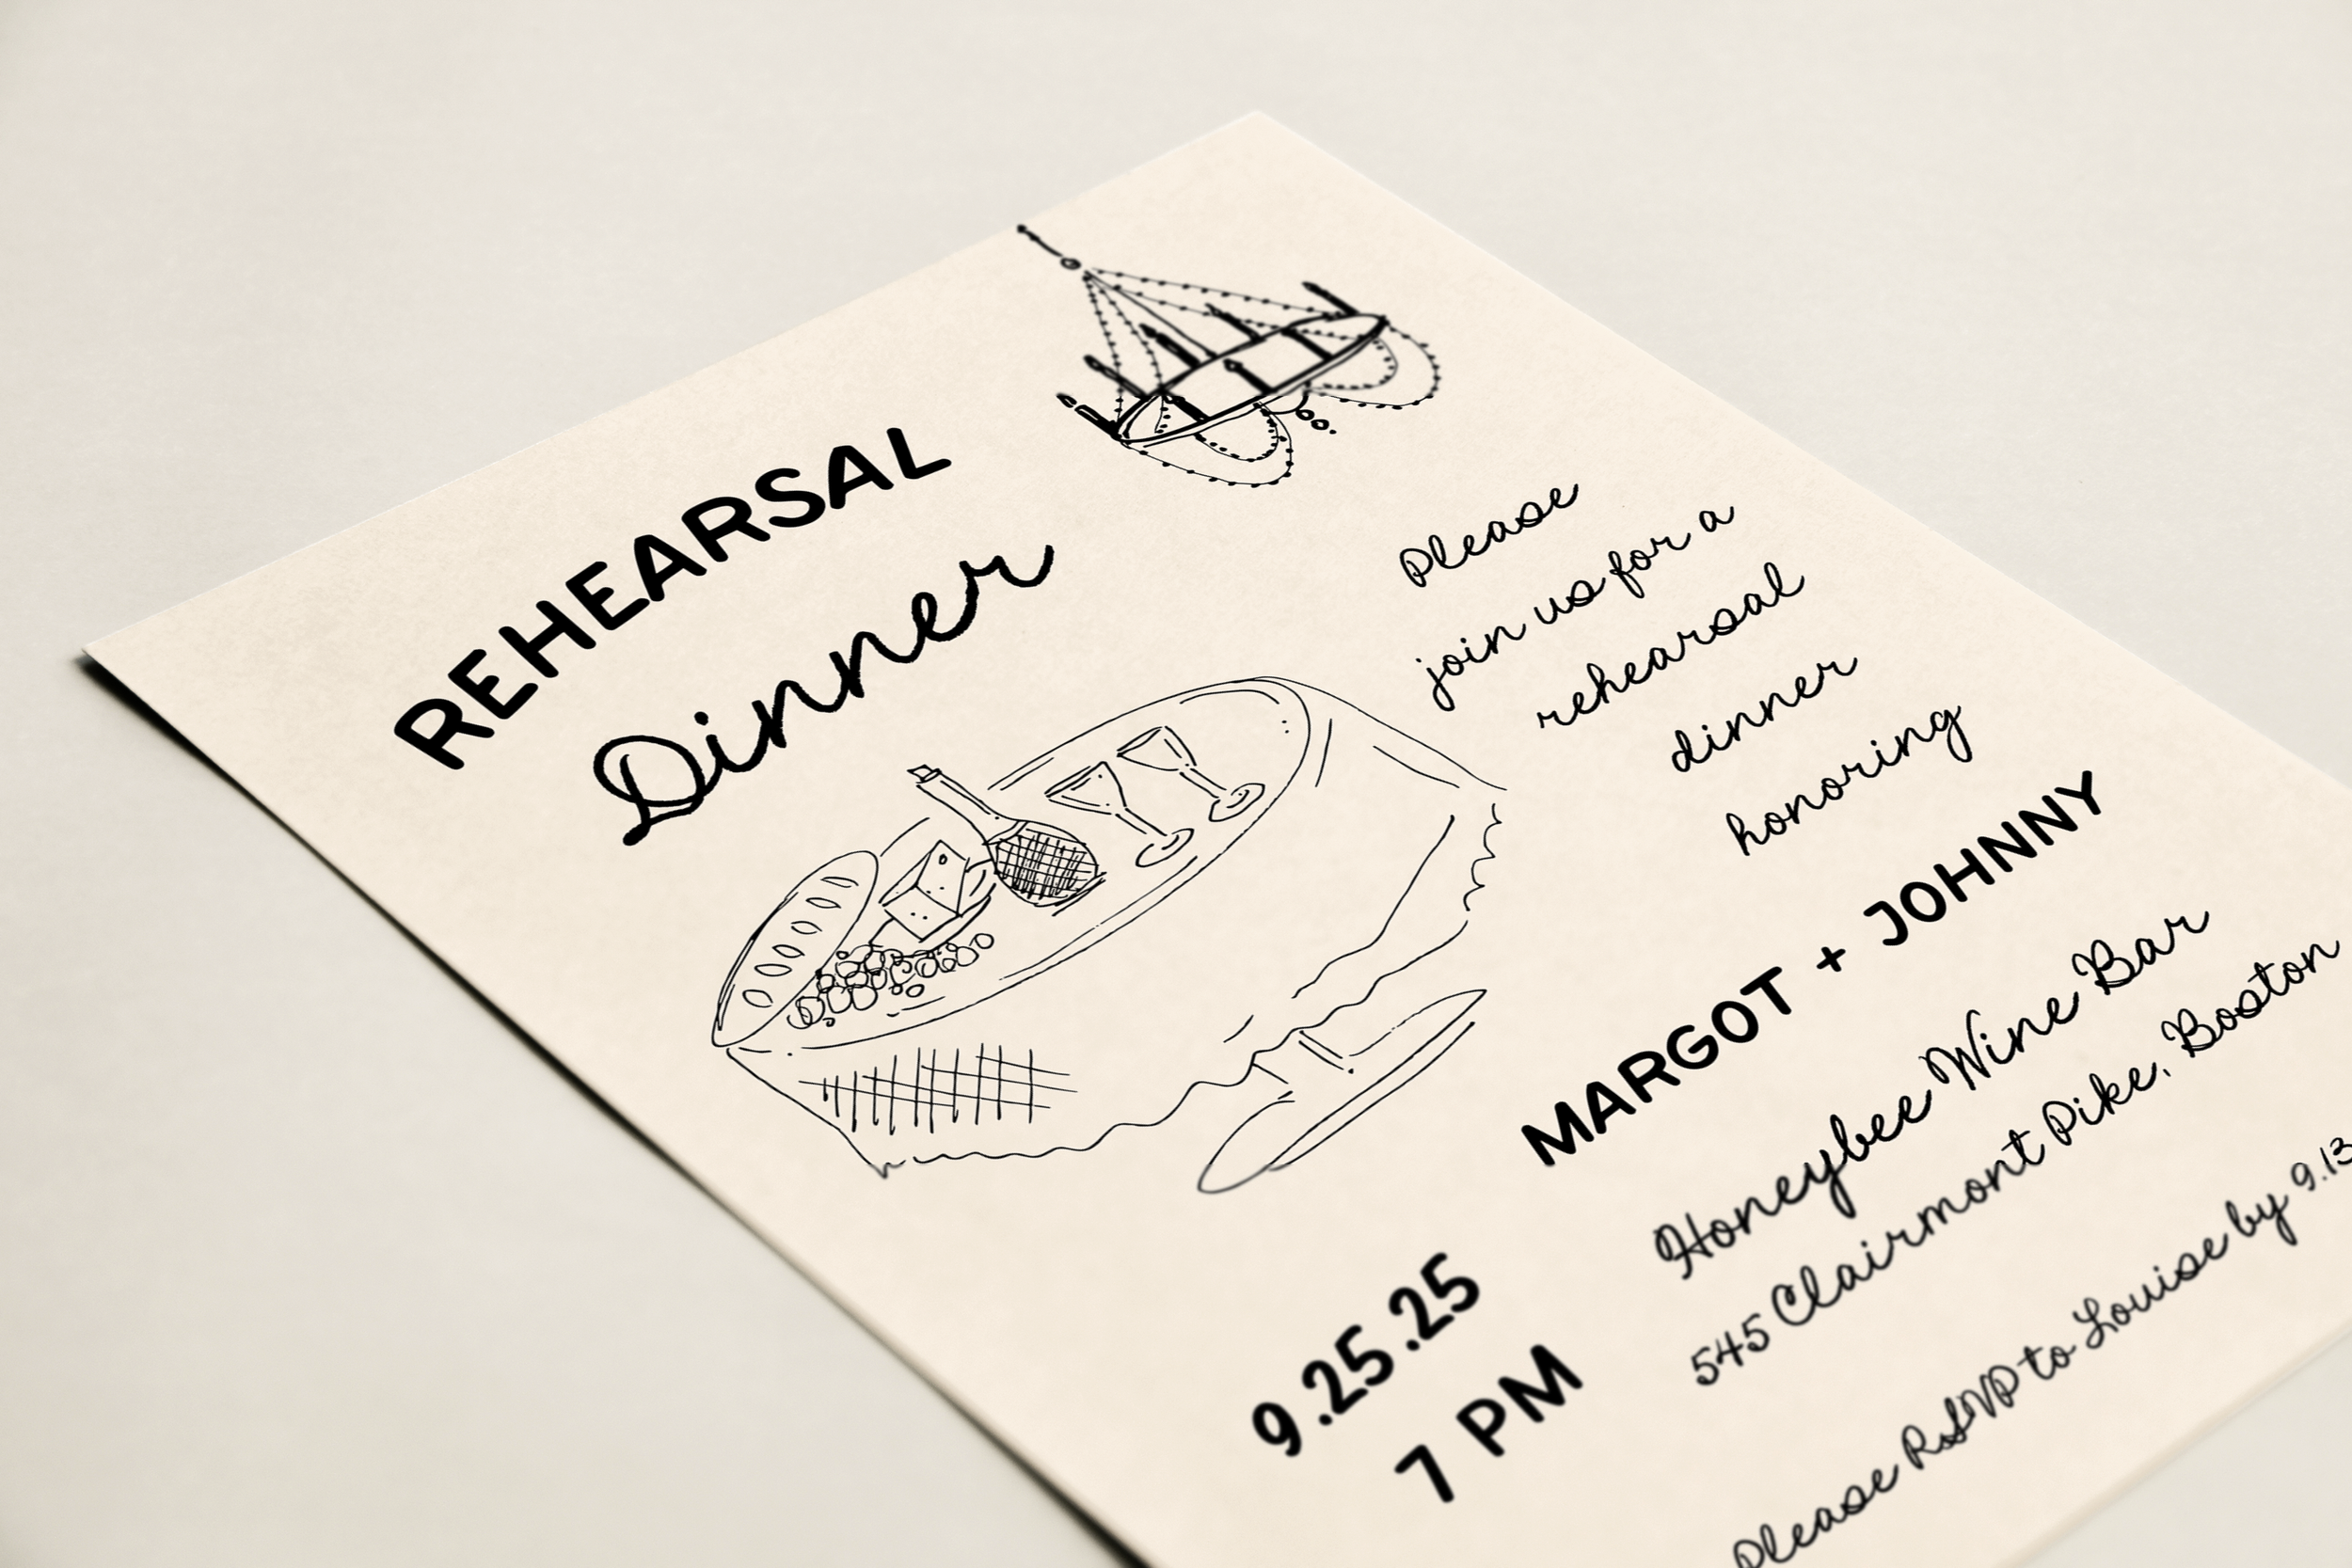 REHEARSAL
Dinner
Please
join us for a
rehearsal
dinner
honoring
MARGOT + JOHNNY
Honeybee Wine Bar
545 Clairmont Pike, Boston
9.25.25
7 PM
Please RSVP to Louise by 9.13